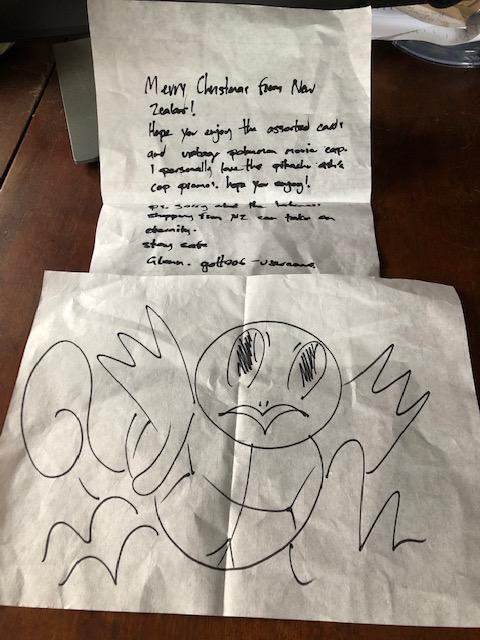 Merry Christmas from New
Zealand!
Hope you enjoy the assorted cards
and pokemon movie cap.
I personally love the pikachu ash's
cap promo. hope you enjoy!
ps. sorry about the
shipping from NZ can take an
eternity.
stay safe
Glenn. - username.